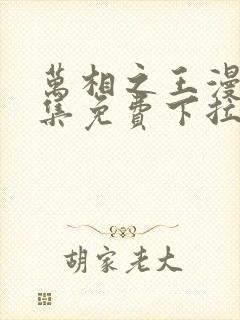 萬相之王漫
集免費下拉
胡家老大